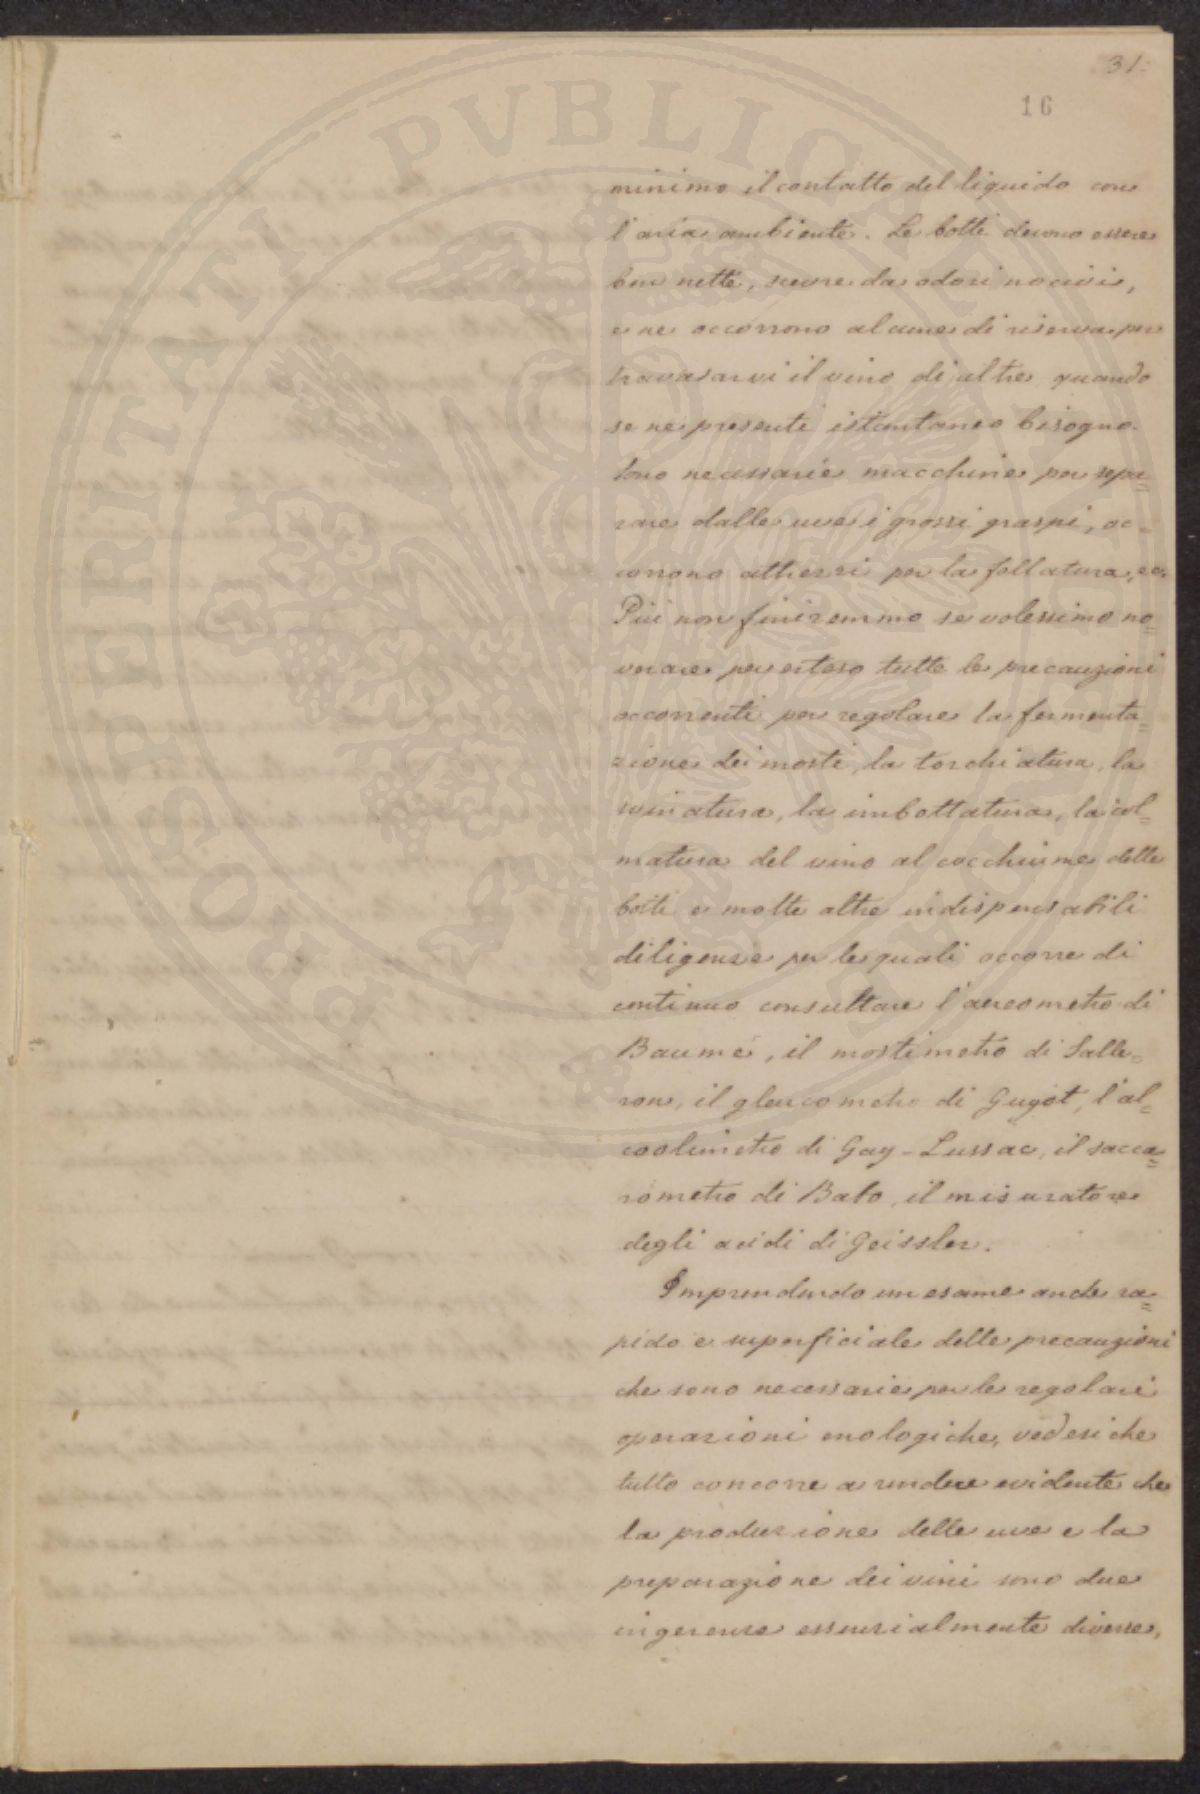 31.
16
PROSPERITATI PVBLICAE
minimo il contatto del liquido con
l'aria ambiente. Le botti devono essere
ben nette, scevre da odori nocivi,
e ne occorrono alcune di riserva per
travasarvi il vino di altre quando
se ne presenti istantaneo bisogno.
Sono necessarie macchine per sepa=
rare dalle uve i grossi graspi, oc=
corrono attrezzi per la follatura, ec.
Più non finiremmo se volessimo no=
verare per esteso tutte le precauzioni
occorrenti per regolare la fermenta=
zione dei mosti, la torchiatura, la
svinatura, la imbottatura, la col=
matura del vino al cocchiume delle
botti e molte altre indispensabili
diligenze per le quali occorre di
continuo consultare l'areometro di
Baumé, il mostimetro di Salle=
ron, il gleucometro di Guyot, l'al=
coolimetro di Gay-Lussac, il sacca=
rometro di Babo, il misuratore
degli acidi di Geissler.
Imprendendo un esame anche ra=
pido e superficiale delle precauzioni
che sono necessarie per le regolari
operazioni enologiche, vedesi che
tutto concorre a rendere evidente che
la produzione delle uve e la
preparazione dei vini sono due
ingerenze essenzialmente diverse,